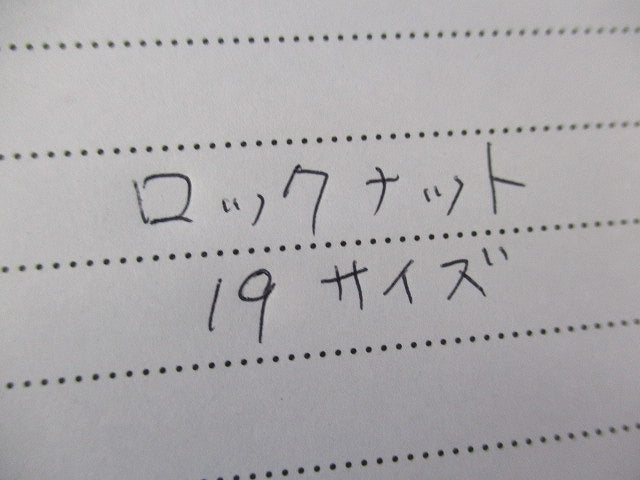 ロックナット
19 サイズ